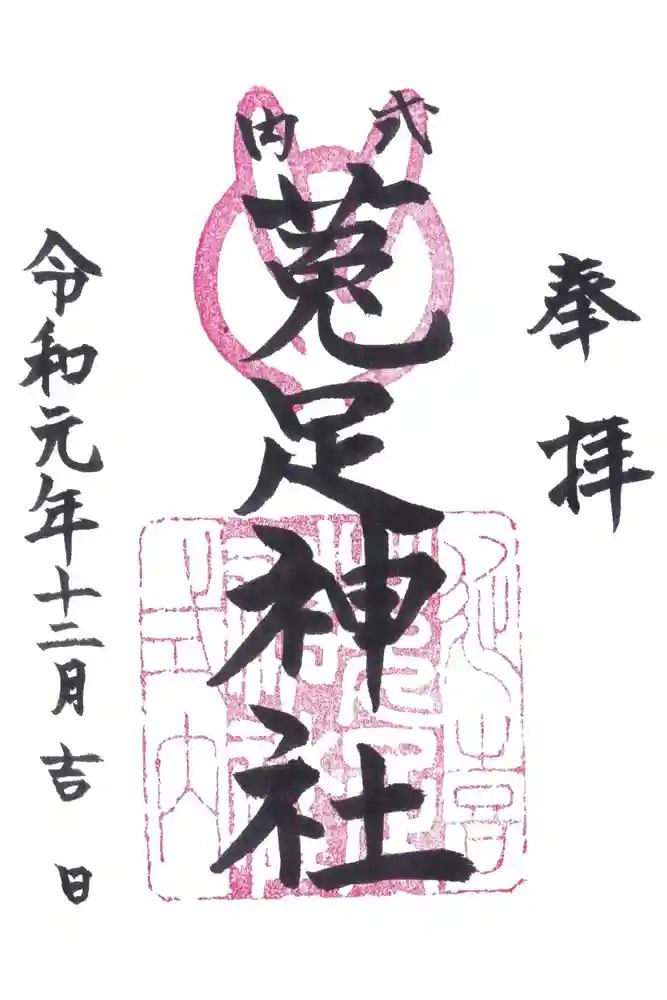 奉拝
式内
菟足神社
令和元年十二月吉日